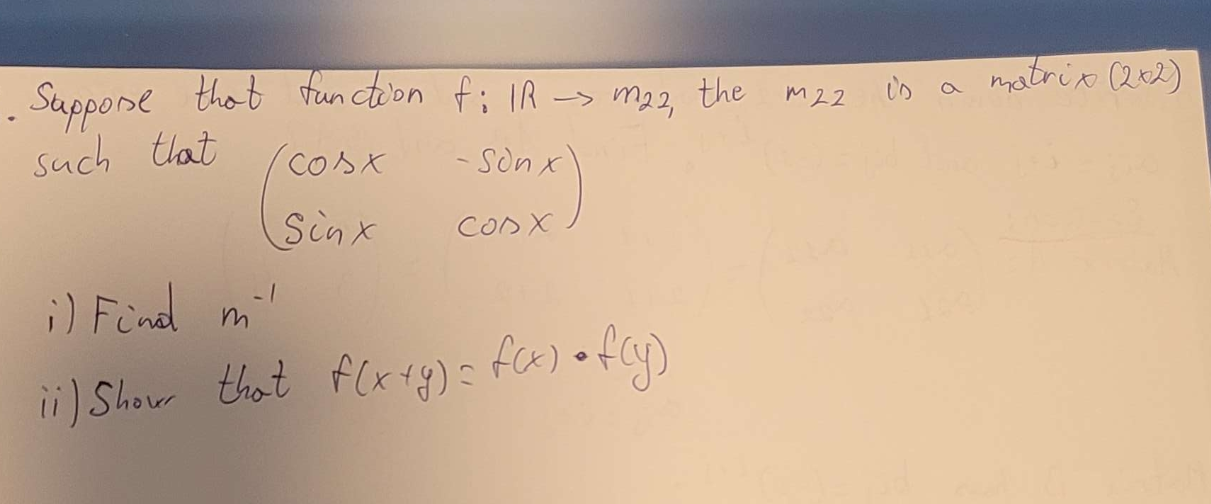 . Suppose that function f: IR → m22, the m22 is a matrix (2x2)
such that (cosx -sinx
sinx cosx)
i) Find m⁻¹
ii) Show that f(x+y) = f(x) • f(y)